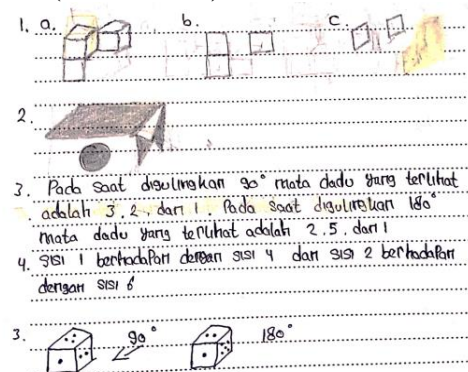 1. a. b. c.
2.
3. Pada saat digulingkan 90° mata dadu yang terlihat
adalah 3, 2, dan 1. Pada saat digulingkan 180°
mata dadu yang terlihat adalah 2, 5, dan 1
4. Sisi 1 berhadapan dengan sisi 4 dan sisi 2 berhadapan
dengan sisi 6
3. 90° 180°